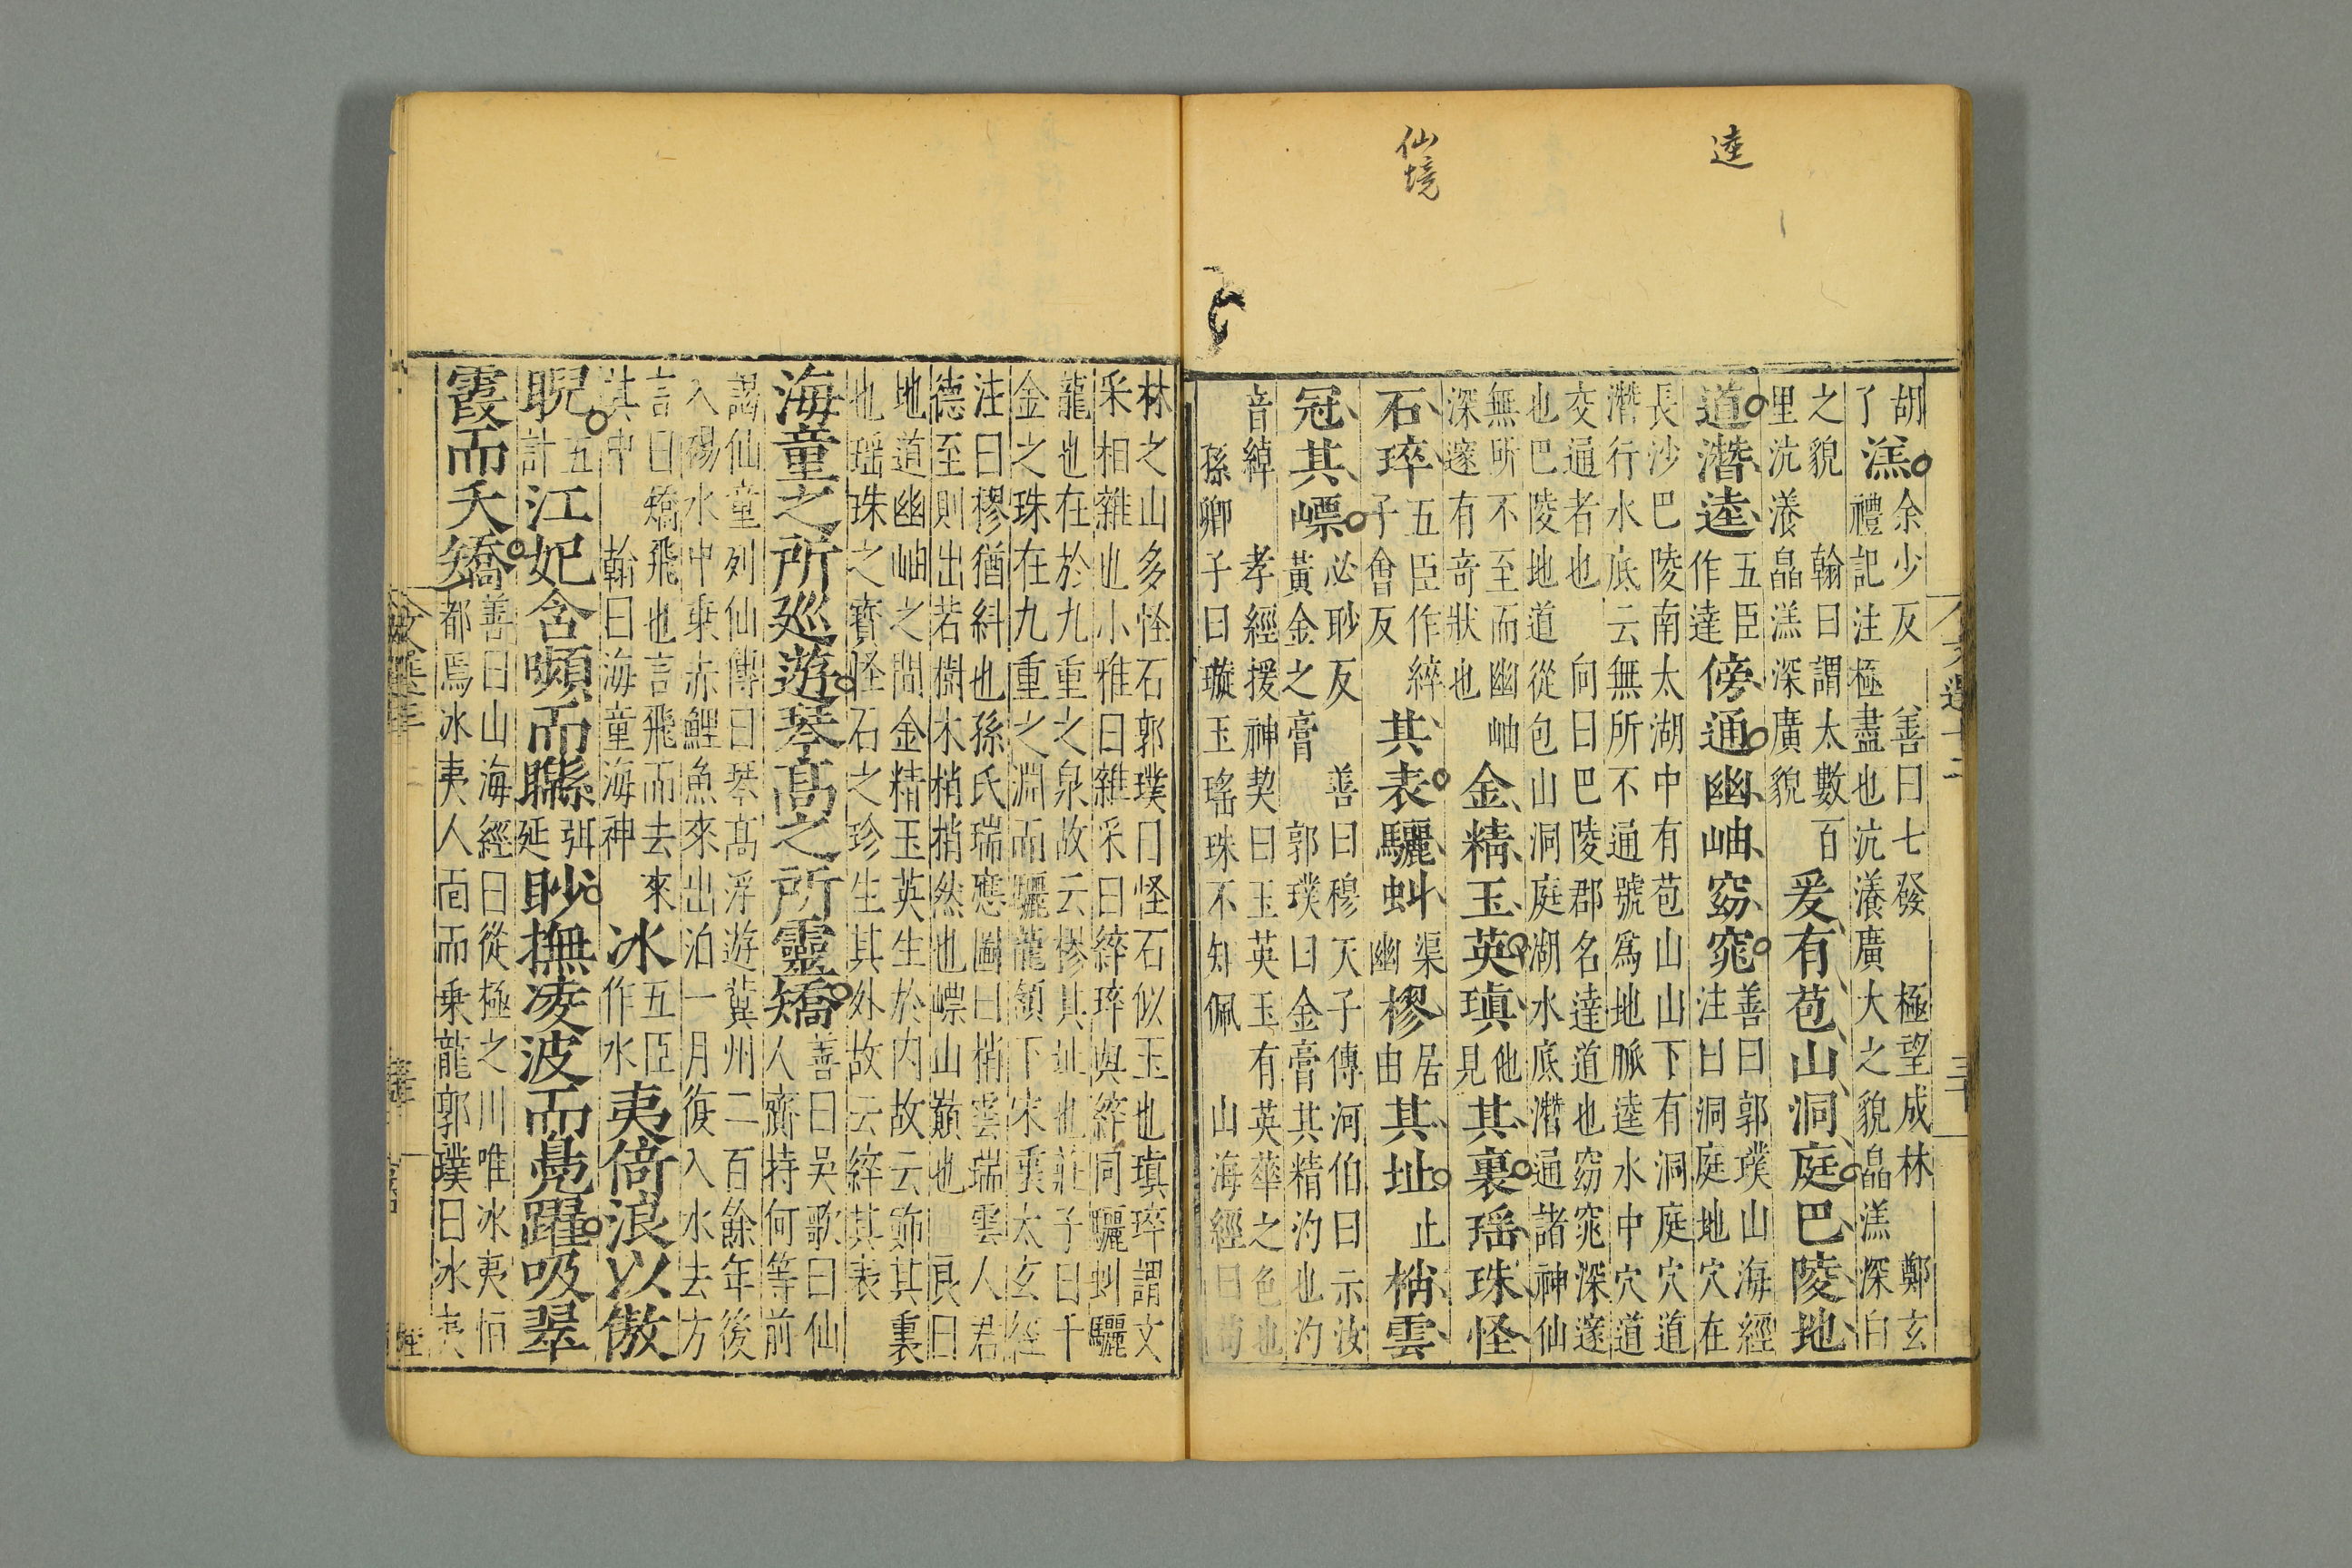 逵
仙境
文選十二
三十
胡
了
溔
余少反 善曰七發 極望成林 鄭玄
禮記注極盡也沆瀁廣大之貌皛溔深白
之貌 翰曰謂太數百
里沆瀁皛溔深廣貌
爰有苞山洞庭巴陵地
道潛逵
五臣
作達
傍通幽岫窈窕
善曰郭璞山海經
注曰洞庭地穴在
長沙巴陵南太湖中有苞山山下有洞庭穴道
潛行水底云無所不通號爲地脈逵水中穴道
交通者也 向曰巴陵郡名達道也窈窕深邃
也巴陵地道從包山洞庭湖水底潛通諸神仙
無所不至而幽岫
深邃有奇狀也
金精玉英瑱
他
見
其裏瑶珠怪
石琗
五臣作綷
子會反
其表驪虯
渠
幽
樛
居
由
其址
止
梢雲
冠其嶛
必眇反 善曰穆天子傳河伯曰示汝
黃金之膏 郭璞曰金膏其精汋也汋
音綽 孝經援神契曰玉英玉有英華之色也
孫卿子曰璇玉瑤珠不知佩 山海經曰苟
林之山多怪石郭璞曰怪石似玉也瑱琗謂文
采相雜也小雅曰雜采曰綷琗與綷同驪虯驪
龍也在於九重之泉故云樛其址也莊子曰千
金之珠在九重之淵而驪龍頷下宋衷太玄經
注曰樛猶糾也孫氏瑞應圖曰梢雲瑞雲人君
德至則出若樹木梢梢然也嶛山巔也 良曰
地道幽岫之間金精玉英生於内故云飾其裏
也瑶珠之寶怪石之珍生其外故云綷其表
海童之所巡遊琴高之所靈矯
善曰吳歌曰仙
人齎持何等前
謁仙童列仙傳曰琴高浮遊冀州二百餘年後
入碭水中乘赤鯉魚來出泊一月復入水去方
言曰矯飛也言飛而去來
其中 翰曰海童海神
冰
五臣
作水
夷倚浪以傲
睨
五
計
江妃含嚬而矊
弭
延
眇撫凌波而鳧躍吸翠
霞而夭矯
善曰山海經曰從極之川唯冰夷恒
都焉冰夷人面而乘龍郭璞曰冰夷